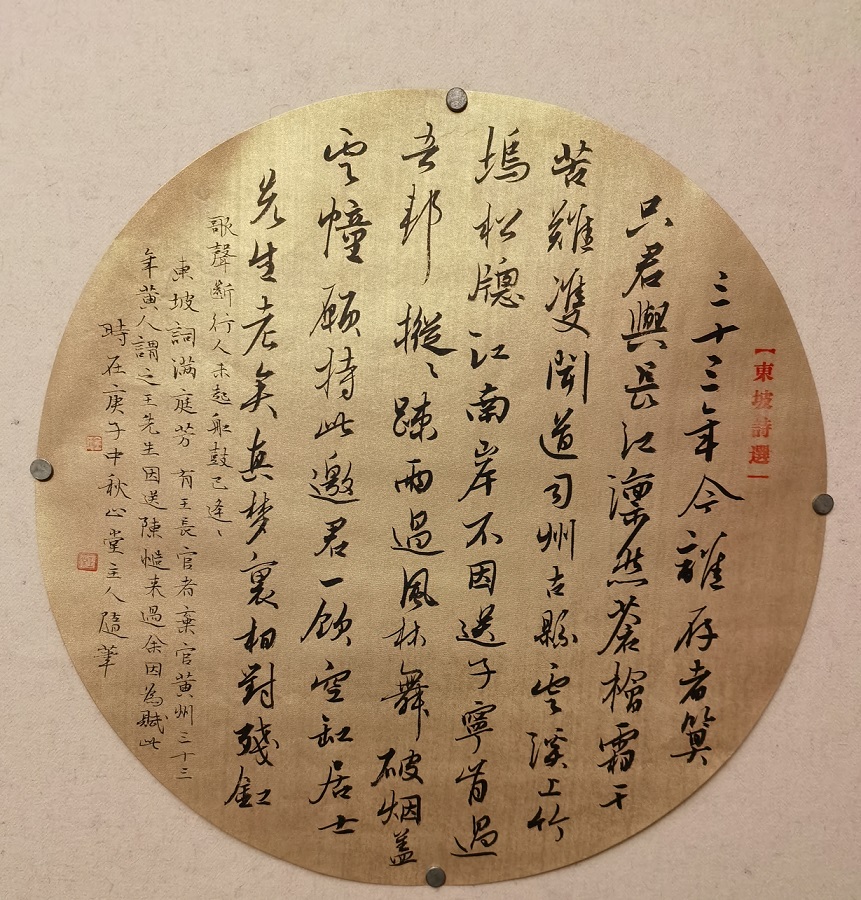 【東坡詩選】
三十三年今誰存者算
只君與長江凜然蒼檜霜干
苦難雙聞道司州古縣雲溪上竹
塢松牕江南岸不因送子寧肯過
吾邦摐〻疎雨過風林舞破烟盖
雲幢願持此邀君一飲空缸居士
先生老矣真梦裏相對殘釭
歌聲斷行人未起船鼓已逢〻
東坡詞滿庭芳有王長官者棄官黃州三十三
年黃人謂之王先生因送陳慥来過余因為賦此
時在庚子中秋堂主人隨筆